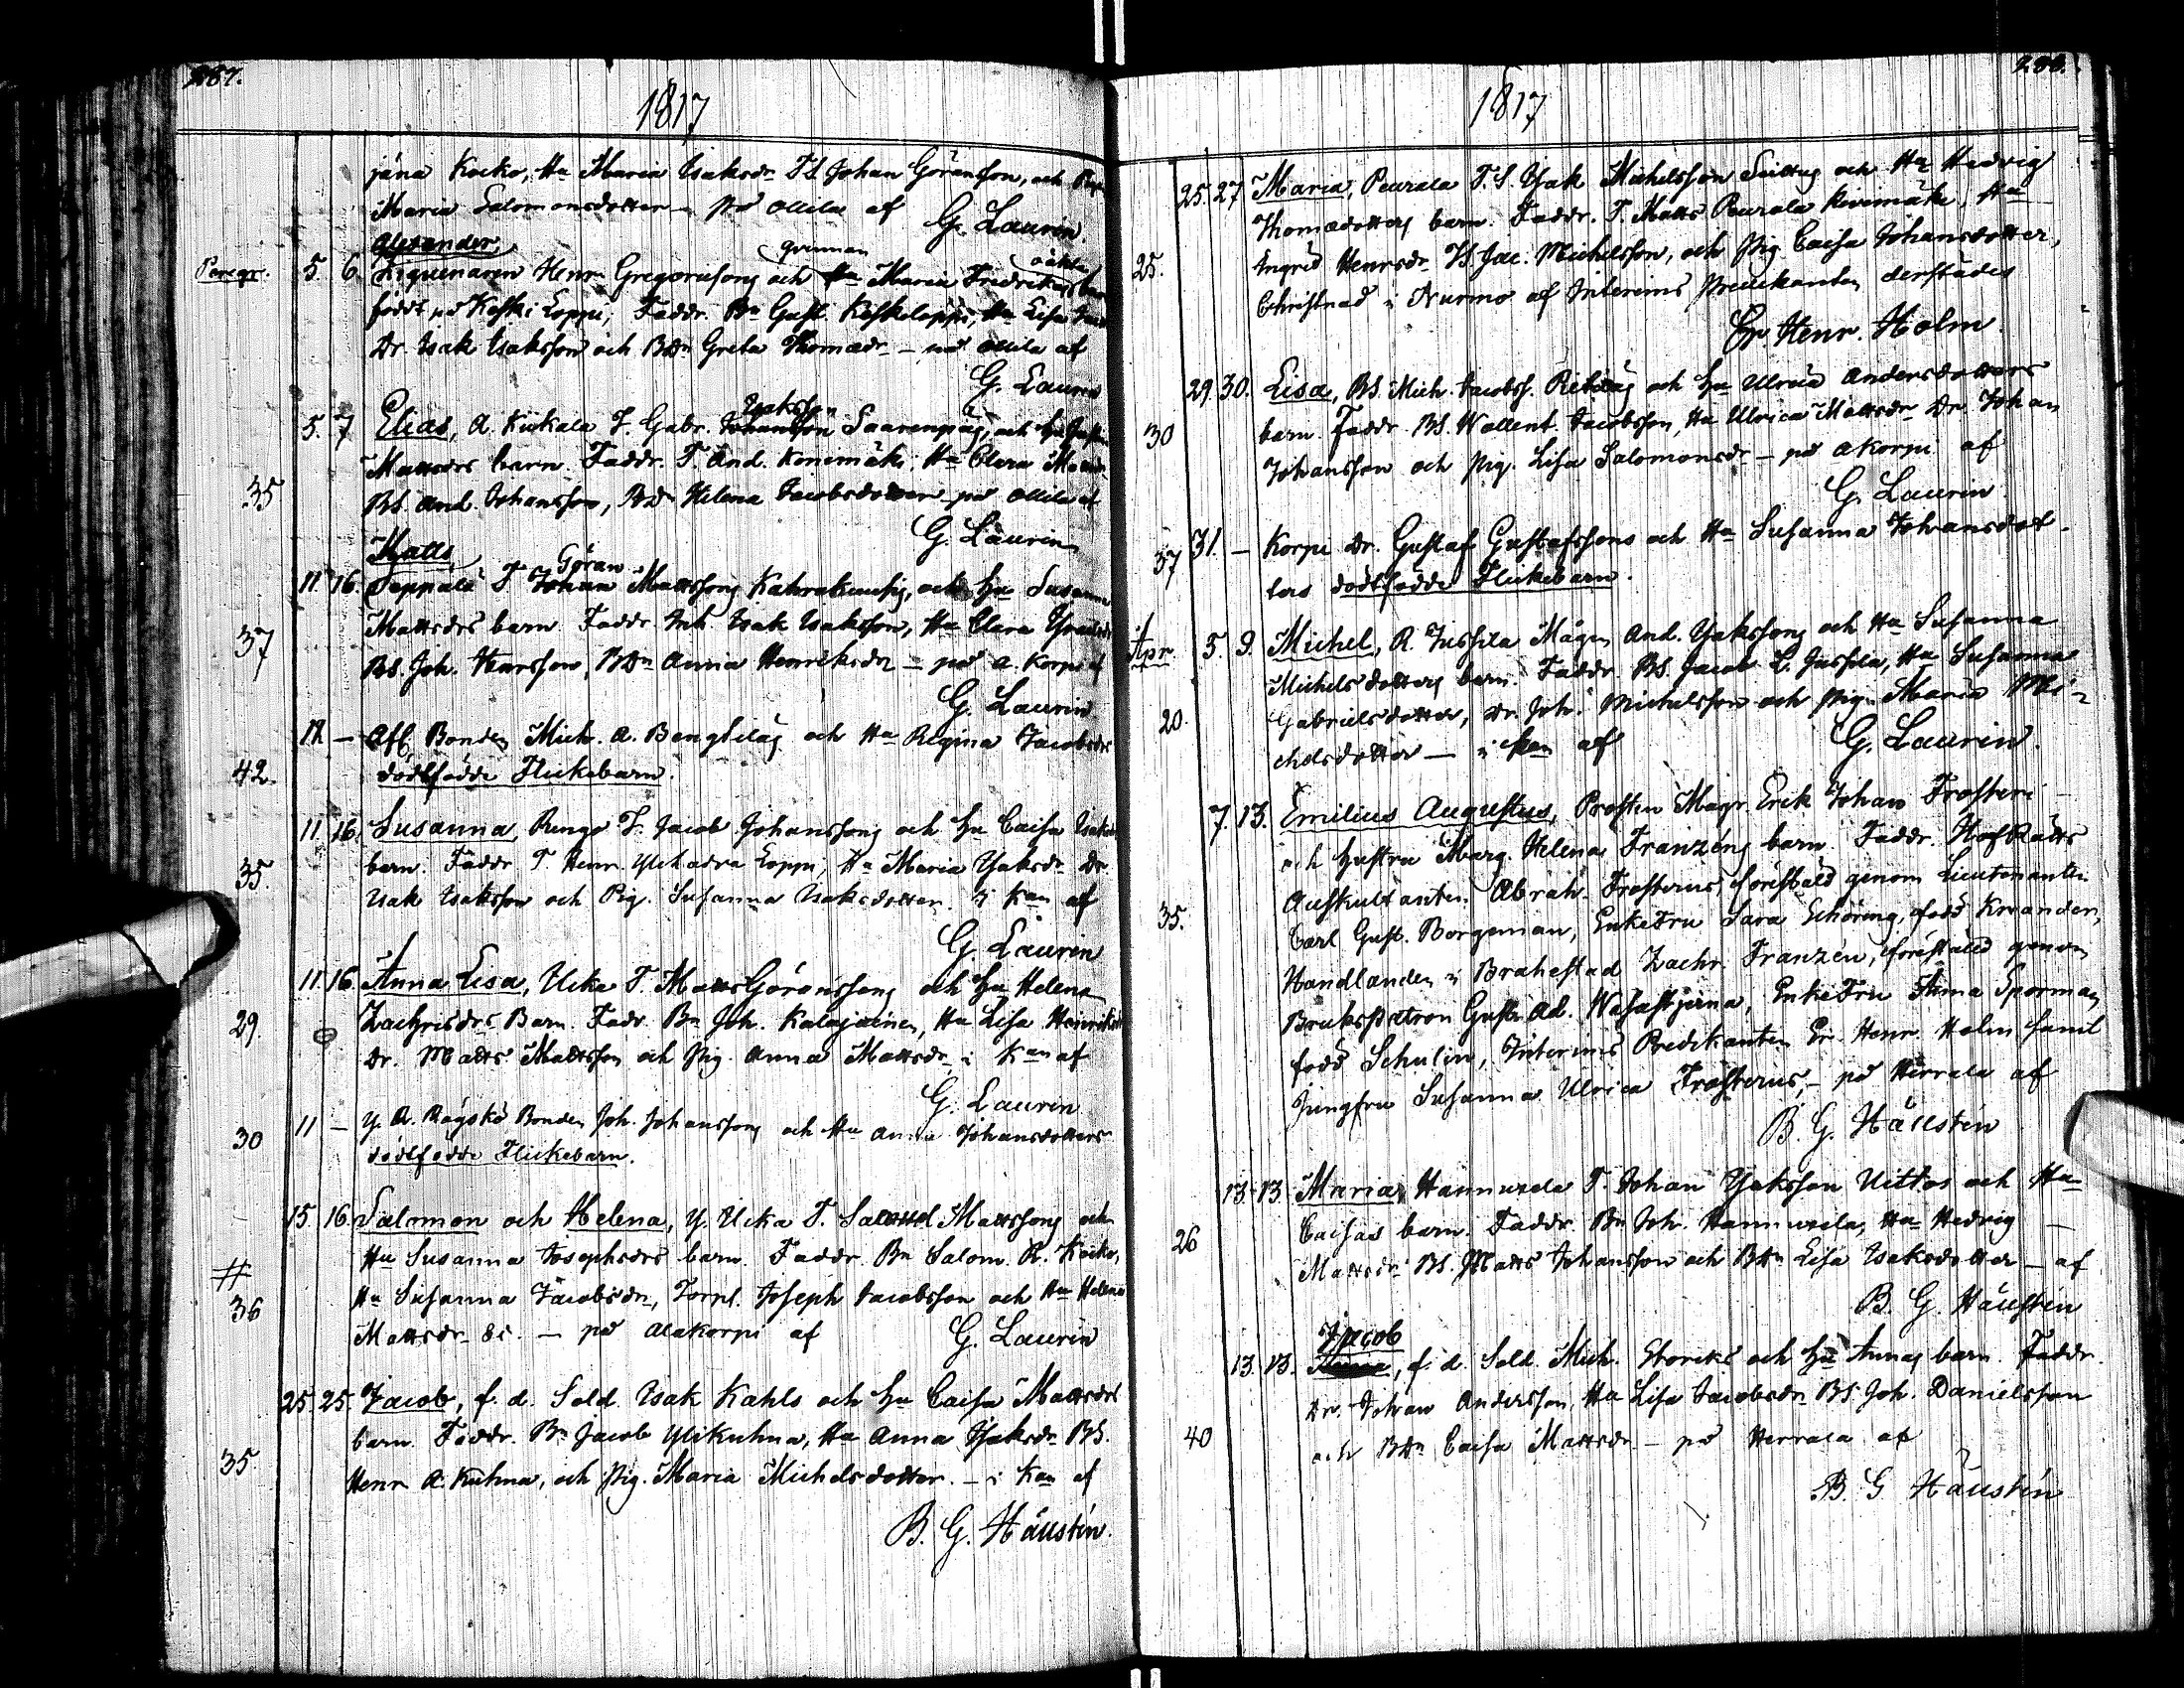 287.
1817
jána Koiko, Ha Maria Isaksdr TS Johan Göransson, och
Maria Salomonsdotter på Ollila af G. Laurin
Alexander, qvinnan oäkta
Peregr. 5. 6. Henr Gregoriisons och Maria Fredrikas
född på Keski Loppi, Faddr. Bn Gust. Keskiloppi, Ha Lisa
Dr. Isak Isaksson och BDn Greta Thomædr – på Ollila af
G. Laurin
Isaksson
5. 7 Elias, A. Kukala T. Gabr. Johansson Saarenpää, och Hu
Mattsdrs barn. Faddr. T. And. Konemäki, Ha Clara
35 BS. And. Johansson, BD Helena Jacobsdotter på Ollila af
G. Laurin
Matts, Göran
11. 16. Seppälä T Johan Mattssons och Hu Susanna
Mattsdrs barn. Faddr. Inh Isak Isaksson, Ha Clara
37 BS. Joh. Hansson, BDn Anna Henriksdr – på A. Korpi af
G. Laurin
12 – Aff Bonden Mich. A. Bengtilas och Ha Regina Jacobsdrs
42. dödfödde Flickebarn.
11. 16. Susanna, Rengo T. Jacob Johanssons och Hu Caisa
barn. Faddr. T. Henr. Loppi, Ha Maria Isaksdr Dr.
35. Isak Isaksson och Pig. Susanna Isaksdotter i Kan af
G. Laurin
11. 16. Anna Lisa, Ucka T. Matts Göranssons och Hu Helena
29. Zachrisdrs Barn. Fadr. Bn Joh. Kalajainen, Ha Lisa
Dr. Matts Mattsson och Pig. Anna Mattsdr i Kan af
G. Laurin
30 11 – Y. R. Rägskö Bonden Joh. Johanssons och Ha Anna Johansdotters
dödfödde Flickebarn.
15. 16. Salomon och Helena, Y. Ucka T. Mattssons och
Ha Susanna Josephsdrs barn. Faddr. Bn Salom. R. Koiko,
#
36 Ha Susanna Jacobsdr, Torpl. Joseph Jacobsson och Ha Helena
Mattsdr &c. – på Alakorpi af G. Laurin
25. 25. Jacob, f. d. Sold. Isak Kahls och Hu Caisa Mattsdrs
barn. Faddr. Bn Jacob Ylikuhna, Ha Anna Isaksdr BS.
35 Henr A. Kuhna, och Pig. Maria Michelsdotter – i Kan af
B. G. Hällstén.
288.
1817
25. 27 Maria, Peurala T. S. Isak Michelsson och Ha Hedvig
Thomædotters barn. Faddr. T. Matts Peurala Kivimäki, Ha
25. Ingrid Henrsdr TS Jac. Michelsson, och Pig. Caisa Johansdotter,
Christnad i Nurmo af Interims Predikanten derstädes
Er. Henr. Holm
29. 30. Lisa, BS. Mich. Jacobss. och Hu Ulrica Andersdotters
30 barn. Faddr. BS. Wallent. Jacobsson, Ha Ulrica Mattsdr Dr. Johan
Johansson och Pig. Lisa Salomonsdr – på Akorpi af
G. Laurin
37 31. – Korpi Dr. Gustaf Gustafssons och Ha Susanna Johansdot-
ters dödfödde Flickebarn.
Apr. 5. 9. Michel, R. Jussila Mågen And. Isakssons och Ha Susanna
Michelsdotters barn. Faddr. BS. Jacob L. Jussila, Ha Susanna
20. Gabrielsdotter, Dr. Joh. Michelsson och Pig. Maria Mi-
chelsdotter – i Kan af G. Laurin.
7. 13. Emilius Augustus, Prosten Magr. Erik Johan Frosteri
och Hustru Marg. Helena Franzéns barn. Faddr. HofRätts
Auskultanten Abrah. Frosterus, föreställd genom Lieutenanten
35. Carl Gust. Borgeman, EnkeFru Sara född
Handlanden i Brahestad Zachr. Franzén, föreställd genom
BruksPatron Gust. Ad. Wasastjerna, EnkeFru Anna Sporman,
född Schulin, Interims Predikanten Er. Henr. Holm samt
Jungfru Susanna Ulrica Frosterus, – på Herrala af
B. G. Hällstén
13. 13. Maria, Hannuxela T. Johan Isaksson Uittos och Ha
26 Caisas barn. Faddr. Bn Joh. Hannuxela, Ha Hedvig
Mattsdr BS. Matts Johansson och BDn Lisa Isaksdotter – af
B. G. Hällstén
Jacob
13. 13. , f. d. Sold. Mich. och Hu Annas barn. Faddr
Dr. Johan Andersson, Ha Lisa Jacobsdr BS. Joh. Danielsson
40 och BDn Caisa Mattsdr – på Herrala af
B. G Hällstén